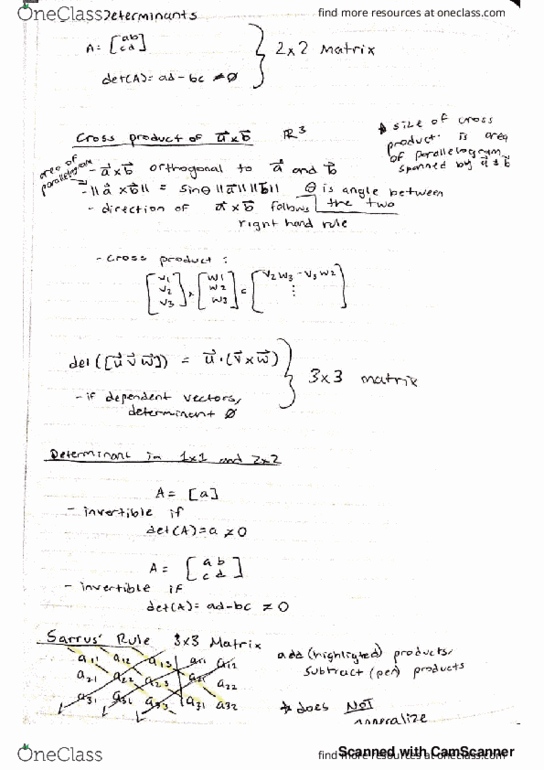 OneClass
find more resources at oneclass.com
Determinants
A = [ab
cd]
} 2x2 Matrix
det(A) = ad-bc ≠ 0
Cross product of a⃗xb⃗ ℝ³
* size of cross
product is area
of parallelogram
spanned by a⃗ & b⃗
area of
parallelogram
- a⃗xb⃗ orthogonal to a⃗ and b⃗
- ||a⃗ xb⃗|| = sinθ ||a⃗|| ||b⃗|| θ is angle between
the two
- direction of a⃗xb⃗ follows
right hand rule
- cross product:
[v1
v2
v3] x [w1
w2
w3] = [v2w3 - v3w2
⋮]
det([u⃗ v⃗ w⃗]) = u⃗·(v⃗xw⃗)
} 3x3 matrix
- if dependent vectors,
determinant 0
Determinant in 1x1 and 2x2
A = [a]
- invertible if
det(A) = a ≠ 0
A = [a b
c d]
- invertible if
det(A) = ad-bc ≠ 0
Sarrus' Rule 3x3 Matrix
a11 a12 a13 a11 a12
a21 a22 a23 a21 a22
a31 a32 a33 a31 a32
add (highligted) products,
subtract (pen) products
* does NOT
generalize
OneClass
find more resources at oneclass.com
Scanned with CamScanner